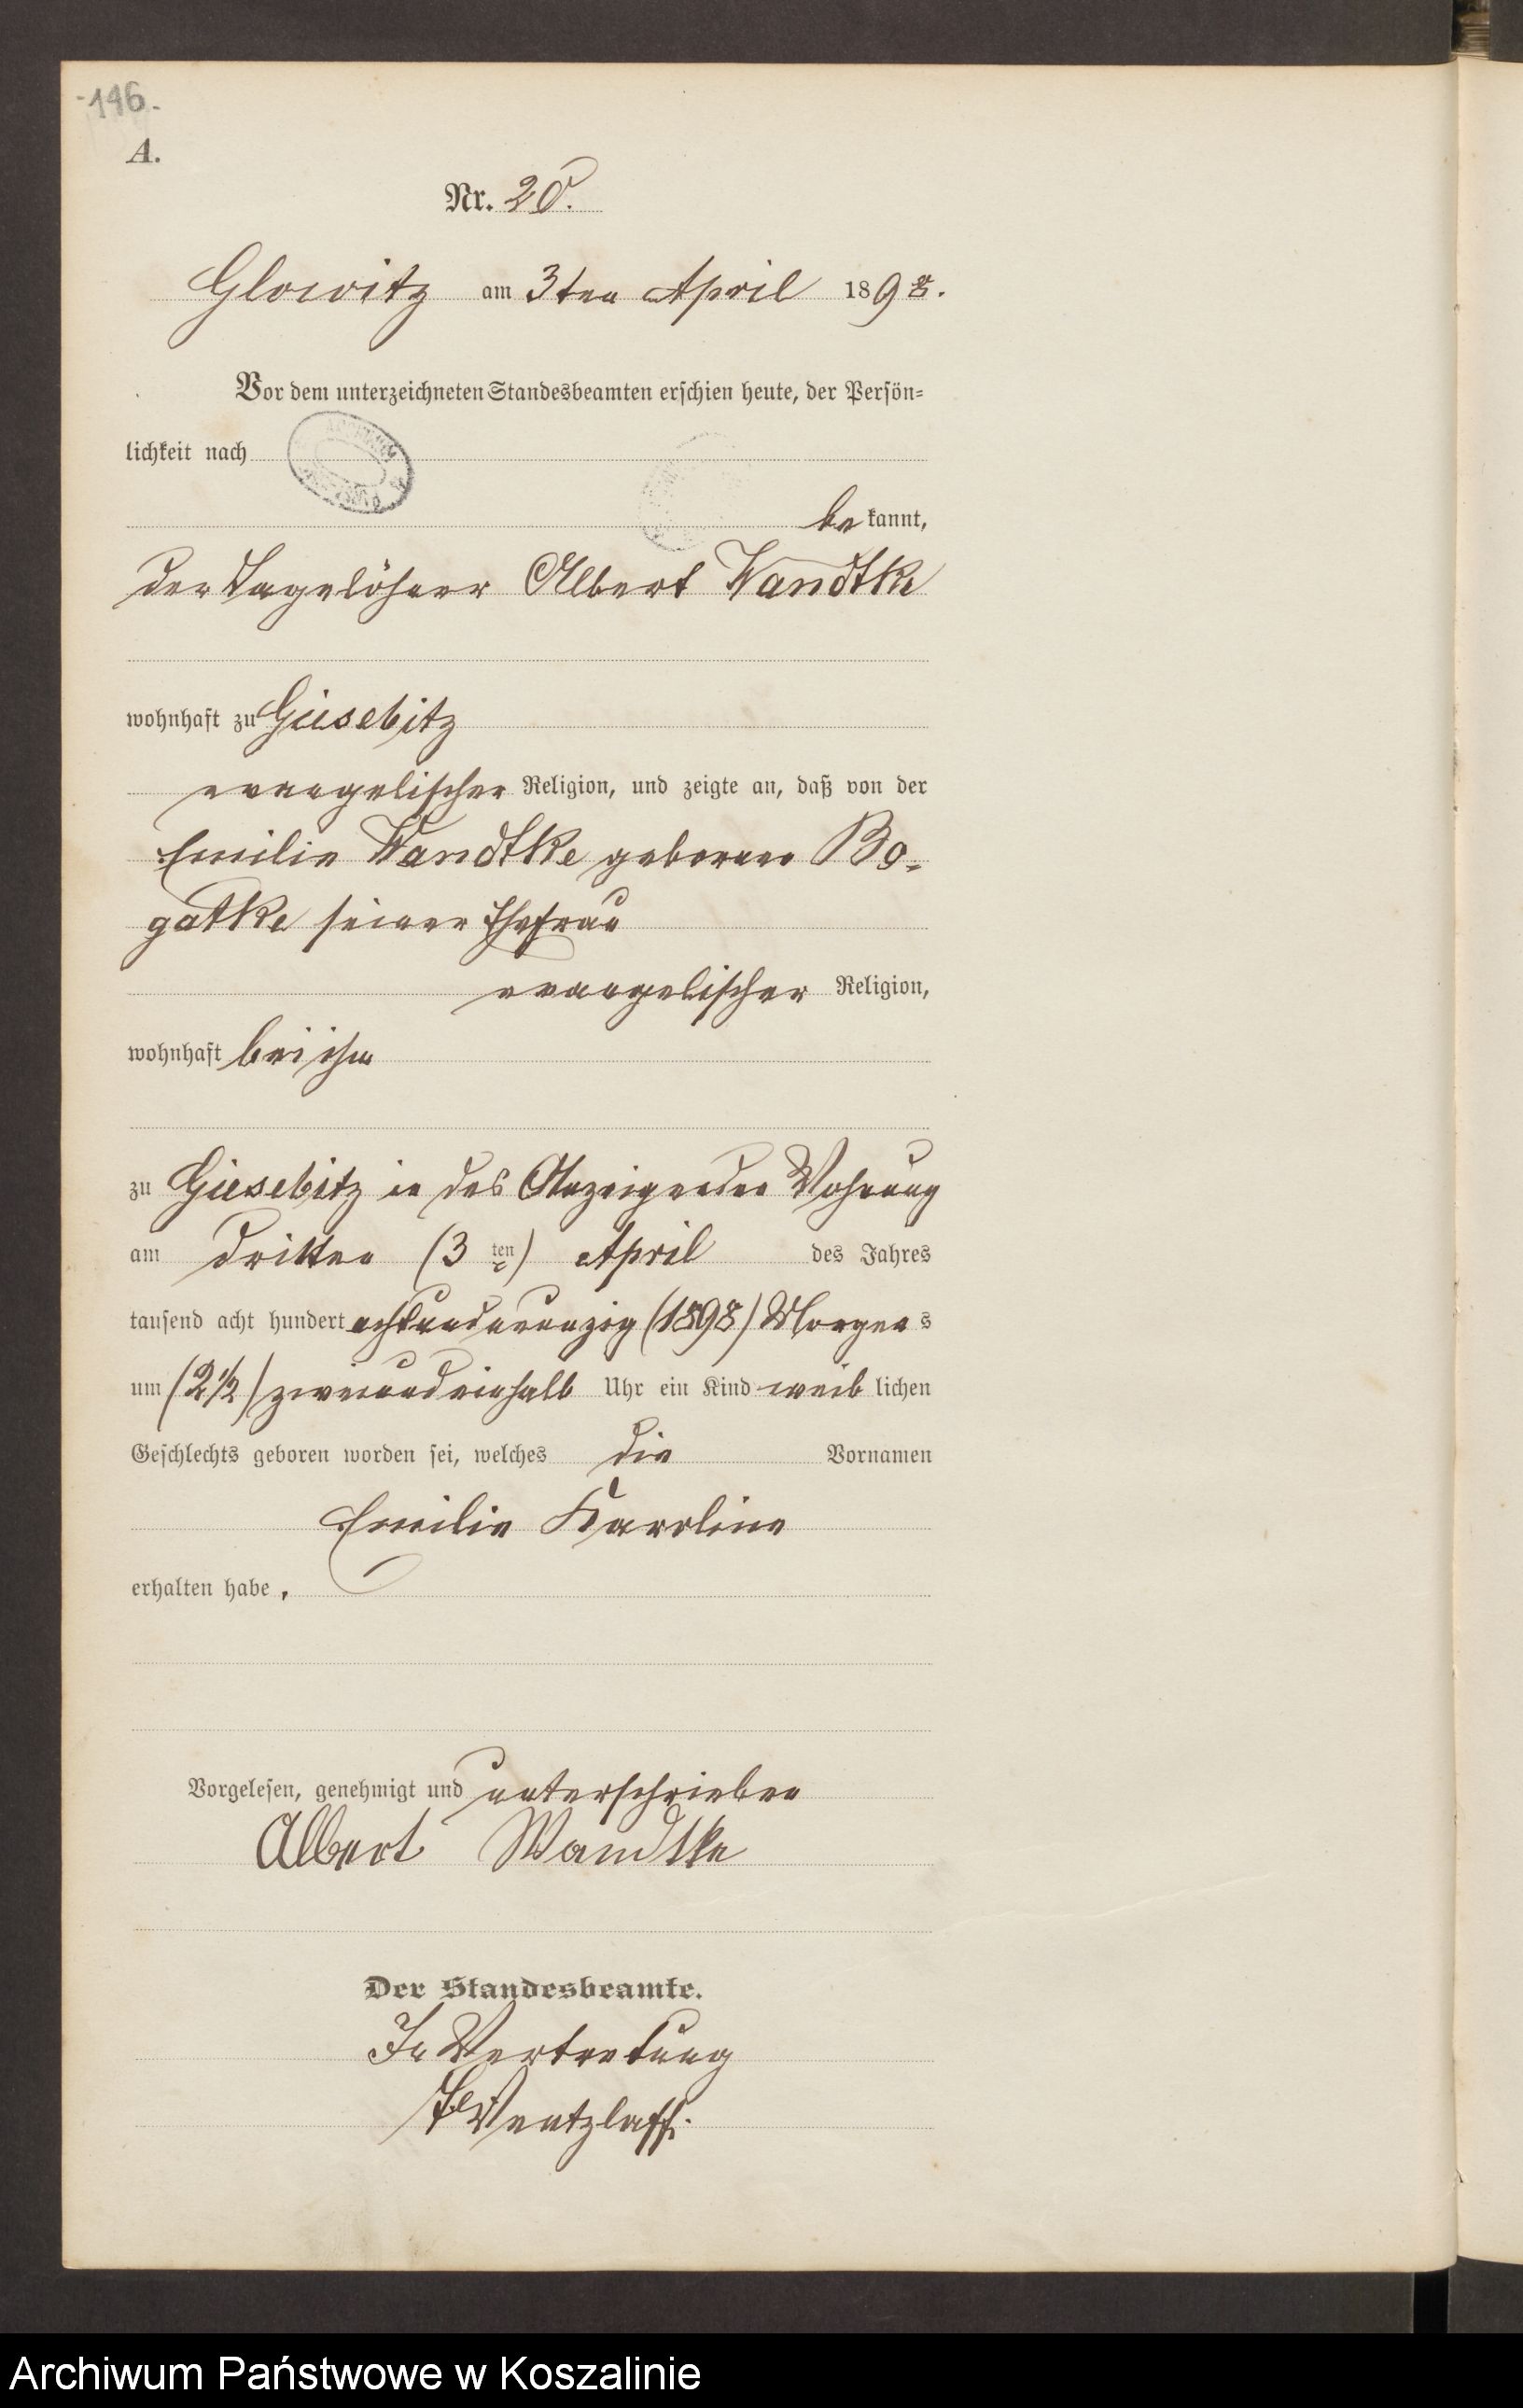 -146.
A.
Nr. 20.
Glowitz am 3ten April 1898.
Vor dem unterzeichneten Standesbeamten erschien heute, der Persön=
lichkeit nach
be kannt,
der Tagelöhner Albert Wandtke
wohnhaft zu Giesebitz
evangelischer Religion, und zeigte an, daß von der
Emilie Wandtke geborene Bo-
gatke seiner Ehefrau
evangelischer Religion,
wohnhaft bei ihm
zu Giesebitz in des Anzeigenden Wohnung
am dritten (3 ten) April des Jahres
tausend acht hundert achtundneunzig (1898) Morgens
um (2 1/2) zweiundeinhalb Uhr ein Kind weib lichen
Geschlechts geboren worden sei, welches die Vornamen
Emilie Karoline
erhalten habe.
Vorgelesen, genehmigt und unterschrieben
Albert Wandtke
Der Standesbeamte.
In Vertretung
Wentzlaff.
Archiwum Państwowe w Koszalinie